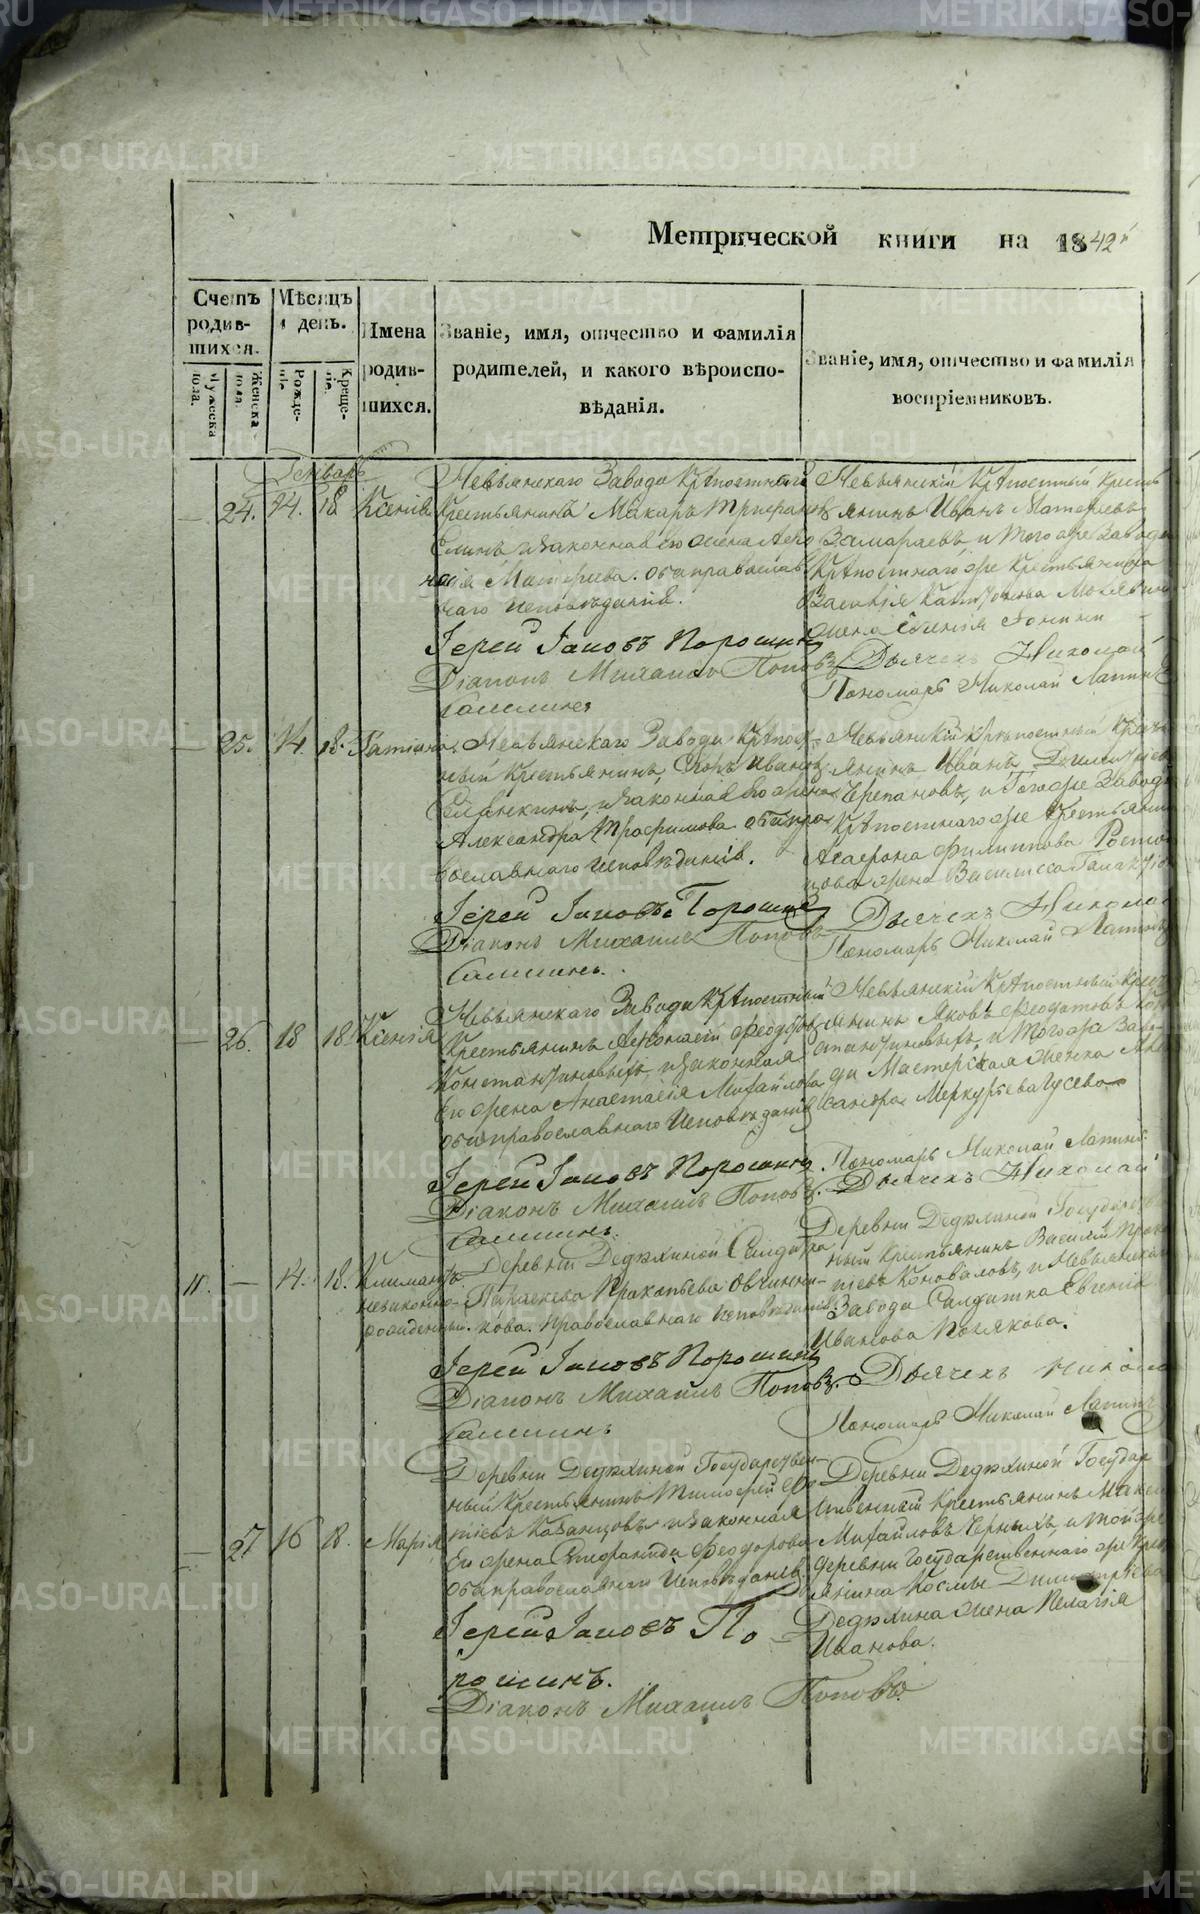 Метрической книги на 1842й
Счетъ родившихся.
Мужеска пола.
Женска пола.
Мѣсяцъ и день.
Рожденія.
Крещенія.
Имена родившихся.
Званіе, имя, отчество и фамилія родителей, и какого вѣроисповѣданія.
Званіе, имя, отчество и фамилія воспріемниковъ.
Январь
24. 14. 18 Ксенія
Невьянскаго Завода Крѣпостный
Крестьянинъ Макаръ Трифановъ
и законная его жена
Матвѣева. оба православ
наго исповѣданія.
Іерей Іаковъ Порошинъ
Діаконъ Михаилъ Поповъ
Невьянскій Крѣпостный Кресть
янинъ Иванъ Матвѣевъ
Замараевъ и того же Завода
Крѣпостнаго же Крестьянина
жена Евгенія
Дьячекъ Николай
Пономарь Николай Лапинъ
25. 14. 18.
Невьянскаго Завода Крѣпост
ный Крестьянинъ, Егоръ Ивановъ
и законная его жена
Александра Трофимова оба пра
вославнаго исповѣданія.
Іерей Іаковъ Порошинъ
Діаконъ Михаилъ Поповъ
Невьянскій Крѣпостный Крест
янинъ Иванъ Димитріевъ
Черепановъ, и того же Завода
Крѣпостнаго же Крестьянина
Агафона Филиппова
жена Василисса
Дьячекъ Николай
Пономарь Николай Лапинъ
26. 18 18. Ксенія
Невьянскаго Завода Крѣпостный
Крестьянинъ Афонасій Феодоровъ
Константиновыхъ и законная
Его жена Анастасія Михайлова
оба православнаго Исповѣданія
Іерей Іаковъ Порошинъ
Діаконъ Михаилъ Поповъ.
Невьянскій Крѣпостный Крест
янинъ Яковъ Феодотовъ Кон
стантиновыхъ, и того же Заво
да Мастерская Женка Алек
сандра Меркурьева Гусева
Пономарь Николай Лапинъ
Дьячекъ Николай
11. — 14. 18. Климантъ
незаконно
рожденный.
Деревни Дедюхиной Салдатка
Параскева Прокопьева Овчинни
кова. Православнаго исповѣданія.
Іерей Іаковъ Порошинъ
Діаконъ Михаилъ Поповъ.
Деревни Дедюхиной Государствен
ный Крестьянинъ Василій Проко
піевъ Коноваловъ, и Невьянскаго
Завода Салдатка Евгенія
Иванова Полякова.
Дьячекъ Никола
Пономарь Николай Лапинъ
27 16 18. Марія
Деревни Дедюхиной Государствен
ный Крестьянинъ Тимофей
Казанцовъ и законная
Его жена Феодорова
оба православнаго Исповѣданія.
Іерей Іаковъ По
рошинъ.
Діаконъ Михаилъ Поповъ.
Деревни Дедюхиной Государ
ственный Крестьянинъ
Михайловъ Черныхъ, и той же
деревни Государственнаго же Крест
янина Космы Димитріева
Дедюхина жена Пелагія
Иванова.
METRIKI.GASO-URAL.RU